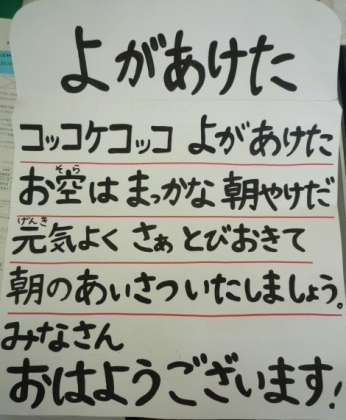 よがあけた
コッコケコッコ よがあけた
お空はまっかな朝やけだ
そら
元気よく さぁ とびおきて
げんき
朝のあいさついたしましょう。
みなさん
おはようございます!